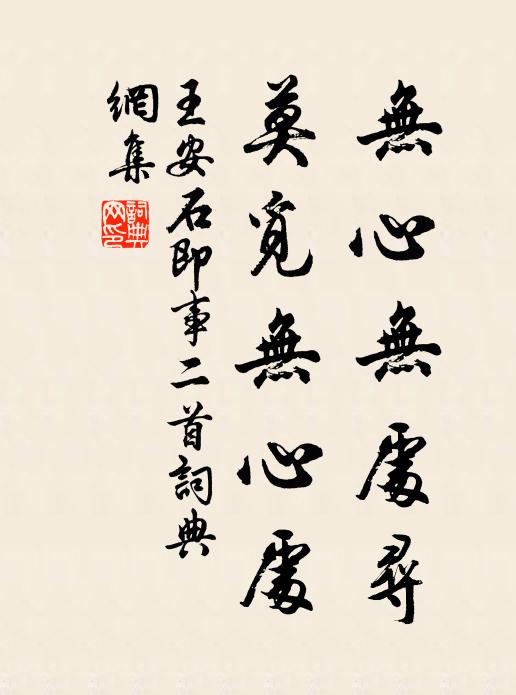 無心無處尋
莫覓無心處
王安石即事二首詞典
網集
詞典
网印